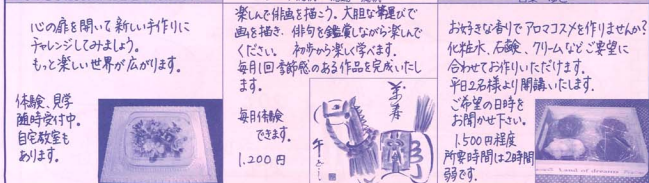 心の扉を開いて新しい手作りに
チャレンジしてみましょう。
もっと楽しい世界が広がります。
体験、見学
随時受付中。
自宅教室も
あります。
楽しんで俳画を描こう。大胆な筆運びで
画を描き、俳句を鑑賞しながら楽しんで
ください。 初歩から楽しく学べます。
毎月1回季節感のある作品を完成いたし
ます。
毎日体験
できます。
1.200円
萬寿
お好きな香りでアロマコスメを作りませんか?
化粧水、石鹸、クリームなどご要望に
合わせてお作りいただけます。
平日2名様より開講いたします。
ご希望の日時を
お聞かせ下さい。
1.500円程度
所要時間は2時間
弱です。
Land of dreams